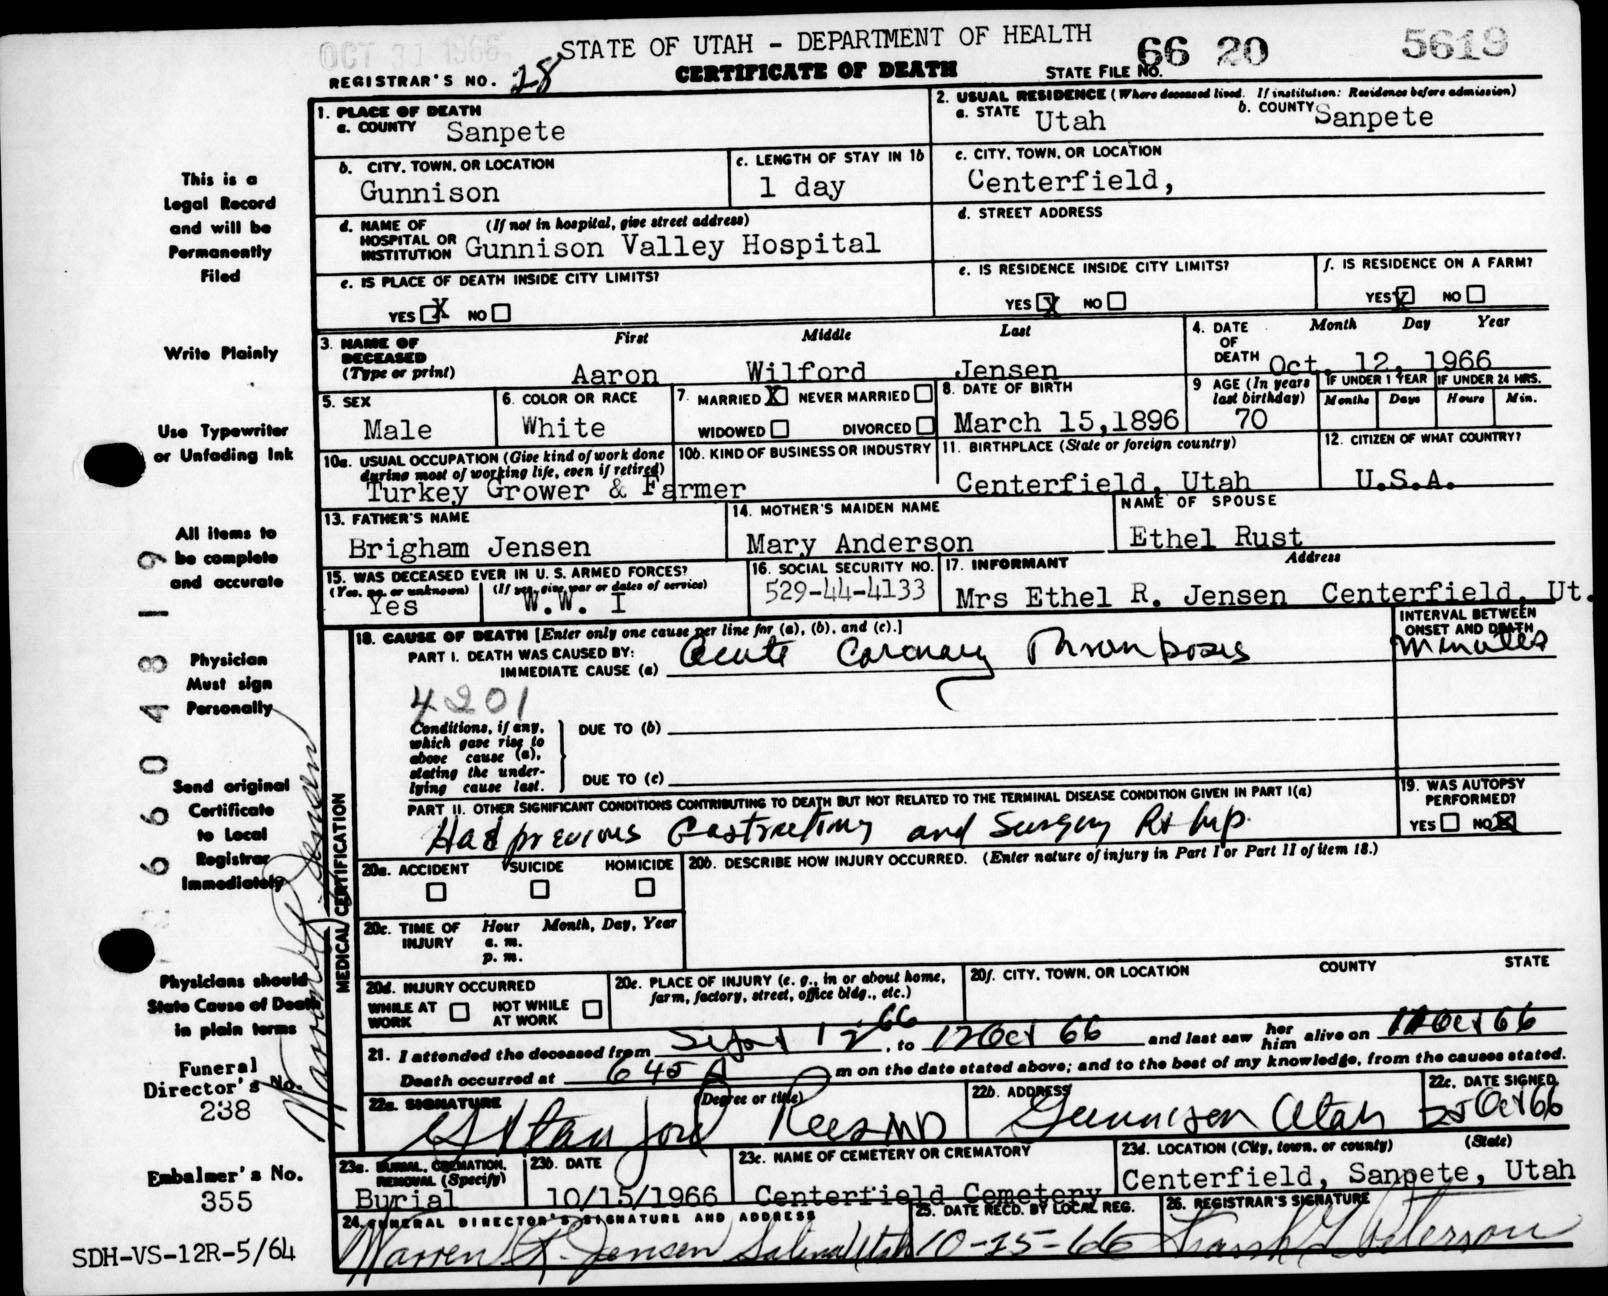 OCT 31 1966
STATE OF UTAH - DEPARTMENT OF HEALTH
66 20 5619
REGISTRAR'S NO. 28
CERTIFICATE OF DEATH
STATE FILE NO.
This is a
Legal Record
and will be
Permanently
Filed
Write Plainly
Use Typewriter
or Unfading Ink
All items to
be complete
and accurate
Physician
Must sign
Personally
Send original
Certificate
to Local
Registrar
Immediately
Physicians should
State Cause of Death
in plain terms
Funeral
Director's No.
238
Embalmer's No.
355
SDH-VS-12R-5/64
66048 19
1. PLACE OF DEATH
a. COUNTY Sanpete
2. USUAL RESIDENCE (Where deceased lived. If institution: Residence before admission)
a. STATE Utah b. COUNTY Sanpete
b. CITY, TOWN, OR LOCATION Gunnison
c. LENGTH OF STAY IN 1b 1 day
c. CITY, TOWN, OR LOCATION Centerfield,
d. NAME OF HOSPITAL OR INSTITUTION (If not in hospital, give street address) Gunnison Valley Hospital
d. STREET ADDRESS
e. IS PLACE OF DEATH INSIDE CITY LIMITS?
YES X NO
e. IS RESIDENCE INSIDE CITY LIMITS?
YES X NO
f. IS RESIDENCE ON A FARM?
YES X NO
3. NAME OF DECEASED (Type or print) First Middle Last
Aaron Wilford Jensen
4. DATE OF DEATH Month Day Year
Oct. 12, 1966
5. SEX Male
6. COLOR OR RACE White
7. MARRIED X NEVER MARRIED
WIDOWED DIVORCED
8. DATE OF BIRTH March 15,1896
9 AGE (In years last birthday) 70
IF UNDER 1 YEAR Months Days
IF UNDER 24 HRS. Hours Min.
10a. USUAL OCCUPATION (Give kind of work done during most of working life, even if retired)
10b. KIND OF BUSINESS OR INDUSTRY
Turkey Grower & Farmer
11. BIRTHPLACE (State or foreign country) Centerfield, Utah
12. CITIZEN OF WHAT COUNTRY? U.S.A.
13. FATHER'S NAME Brigham Jensen
14. MOTHER'S MAIDEN NAME Mary Anderson
NAME OF SPOUSE Ethel Rust
15. WAS DECEASED EVER IN U. S. ARMED FORCES?
(Yes, no, or unknown) Yes (If yes, give war or dates of service) W.W. I
16. SOCIAL SECURITY NO. 529-44-4133
17. INFORMANT Address
Mrs Ethel R. Jensen Centerfield, Ut.
MEDICAL CERTIFICATION
18. CAUSE OF DEATH [Enter only one cause per line for (a), (b), and (c).]
INTERVAL BETWEEN ONSET AND DEATH
PART I. DEATH WAS CAUSED BY:
IMMEDIATE CAUSE (a) Acute Coronary Thrombosis Minutes
4201
Conditions, if any, which gave rise to above cause (a), stating the underlying cause last.
DUE TO (b)
DUE TO (c)
PART II. OTHER SIGNIFICANT CONDITIONS CONTRIBUTING TO DEATH BUT NOT RELATED TO THE TERMINAL DISEASE CONDITION GIVEN IN PART I(a)
Had previous Gastrectomy and Surgery Rt hip
19. WAS AUTOPSY PERFORMED?
YES NO X
20a. ACCIDENT SUICIDE HOMICIDE
20b. DESCRIBE HOW INJURY OCCURRED. (Enter nature of injury in Part I or Part II of item 18.)
20c. TIME OF INJURY Hour Month, Day, Year
a. m.
p. m.
20d. INJURY OCCURRED
WHILE AT WORK NOT WHILE AT WORK
20e. PLACE OF INJURY (e. g., in or about home, farm, factory, street, office bldg., etc.)
20f. CITY, TOWN, OR LOCATION COUNTY STATE
21. I attended the deceased from Sept 12 66, to 12 Oct 66 and last saw her him alive on 11 Oct 66
Death occurred at 645 A m on the date stated above; and to the best of my knowledge, from the causes stated.
22a. SIGNATURE (Degree or title)
G Stanford Rees MD
22b. ADDRESS Gunnison Utah
22c. DATE SIGNED 25 Oct 66
23a. BURIAL, CREMATION, REMOVAL (Specify) Burial
23b. DATE 10/15/1966
23c. NAME OF CEMETERY OR CREMATORY Centerfield Cemetery
23d. LOCATION (City, town, or county) (State)
Centerfield, Sanpete, Utah
24. FUNERAL DIRECTOR'S SIGNATURE AND ADDRESS
Warren R. Jensen Salina Utah
25. DATE RECD. BY LOCAL REG. 10-25-66
26. REGISTRAR'S SIGNATURE
Peterson
Warren R Jensen